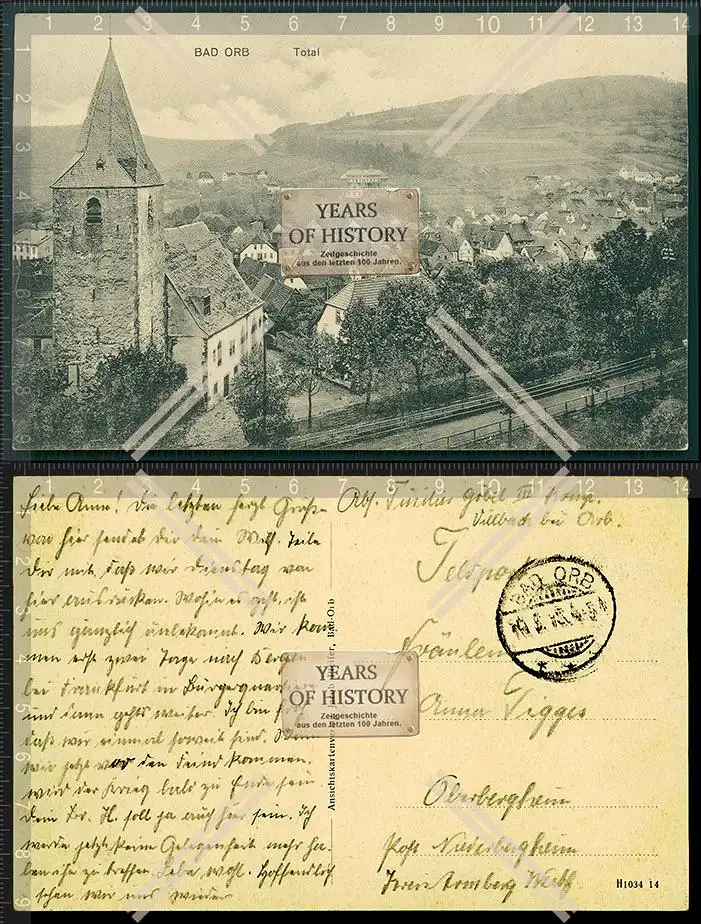 BAD ORB Total
YEARS
OF HISTORY
Zeitgeschichte
aus den letzten 100 Jahren.
Liebe Anna! Die letzten herzl Grüße
von hier sendet dir dein Wilh. Teile
Dir mit, daß wir Dienstag von
hier ausrücken. Wohin es geht, ist
uns gänzlich unbekannt. Wir kom
men erst zwei Tage nach Bergen
bei Frankfurt in
und dann gehts weiter. Ich bin froh
daß wir einmal soweit sind. Wenn
wir jetzt vor den Feind kommen,
wird der Krieg bald zu Ende sein.
Dein Br. H. soll ja auch hier sein. Ich
werde jetzt keine Gelegenheit mehr ha-
ben ihn zu treffen. Lebe wohl. Hoffendlich
sehen wir uns wieder
Abs. Göbel III
Villbach bei Orb.
Feldpost
BAD ORB
Fräulein
Anna Tigges
Oberbergheim
Post Niederbergheim
Kreis Arnsberg Westf
Bad-Orb
YEARS
OF HISTORY
Zeitgeschichte
aus den letzten 100 Jahren.
H1034 14